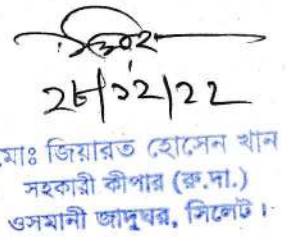 ২৮/১২/২২
মোঃ জিয়ারত হোসেন খান
সহকারী কীপার (রু.দা.)
ওসমানী জাদুঘর, সিলেট।